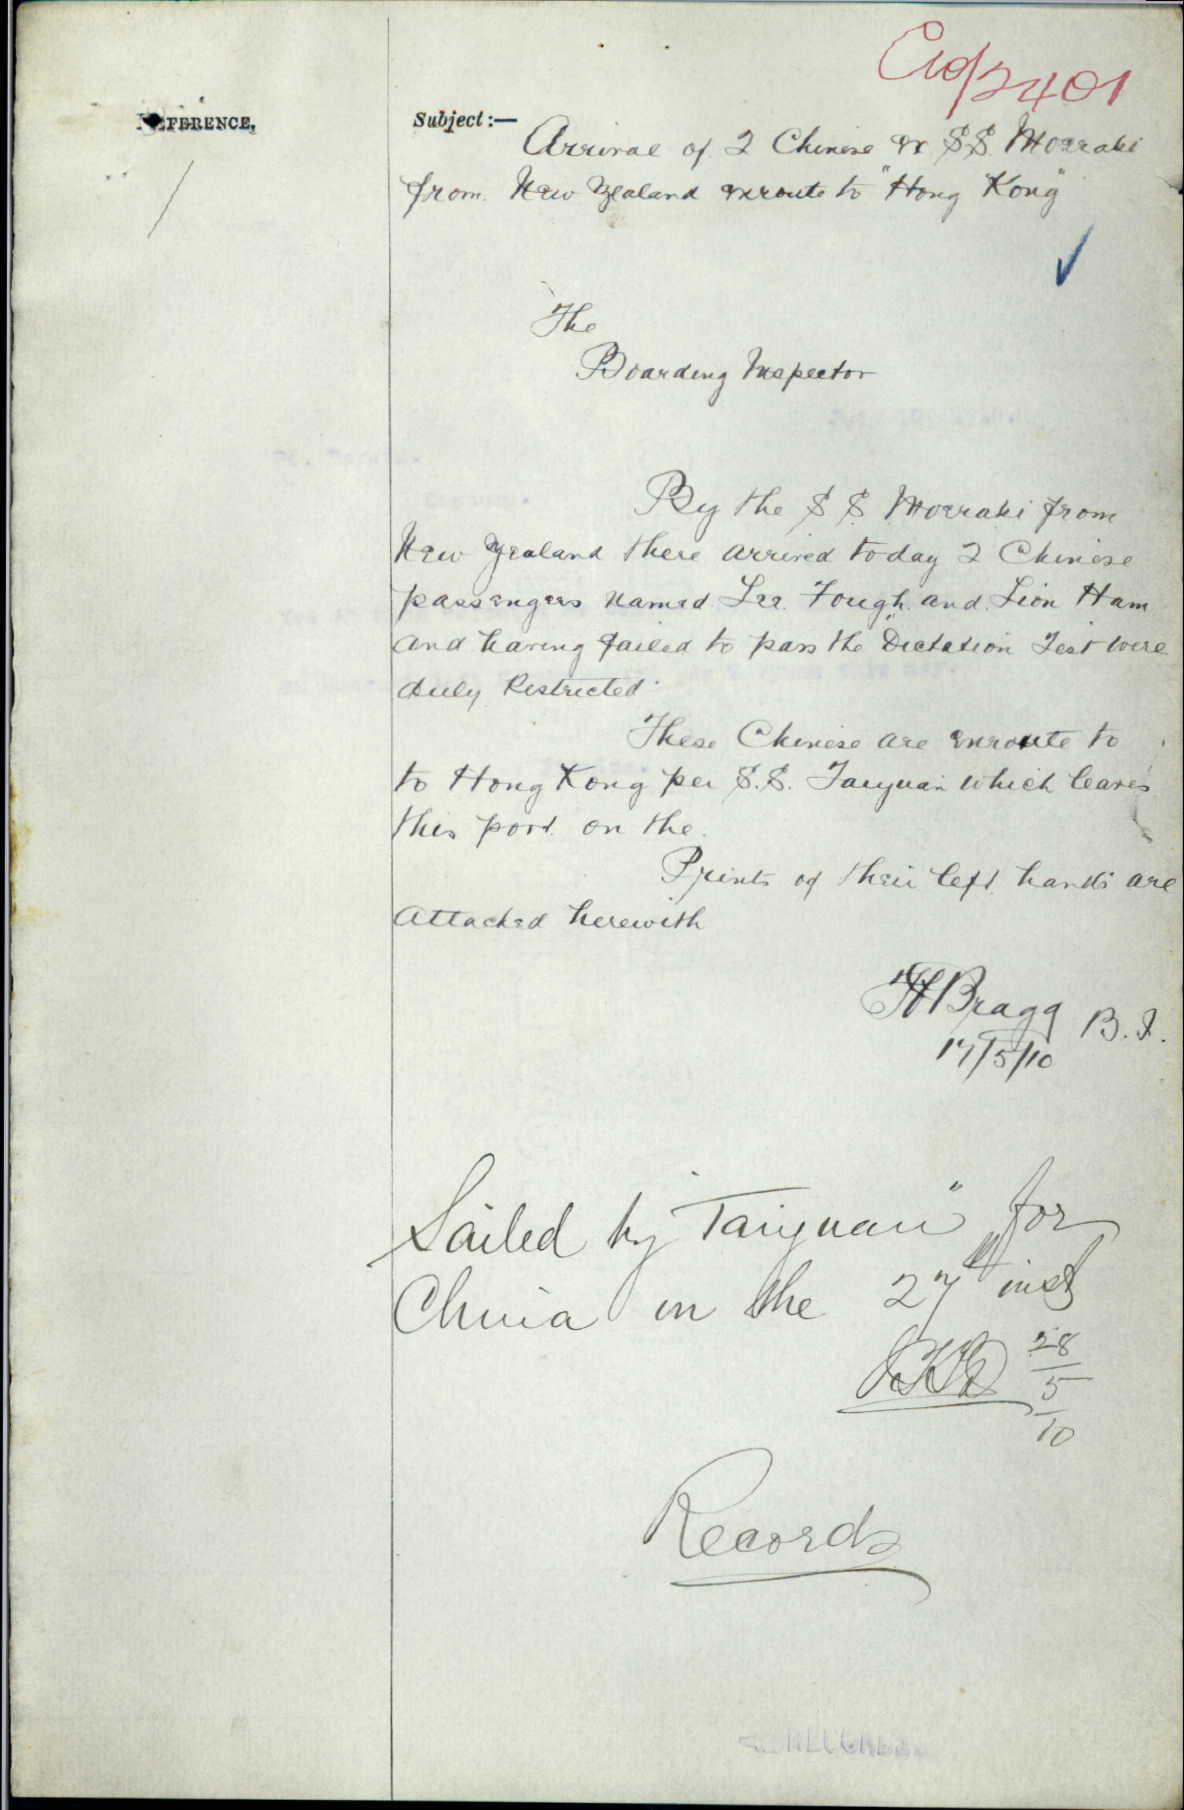 C10/2401
REFERENCE.
Subject:—
Arrival of 2 Chinese ex S.S. Moeraki
from New Zealand enroute to "Hong Kong"
The
Boarding Inspector
By the S S Moeraki from
New Zealand there arrived today 2 Chinese
passengers named Lee Fough and Lion Ham
and having failed to pass the "Dictation Test were
duly Restricted.
These Chinese are enroute to
to Hong Kong per S.S. Taiyuan which leaves
this port on the.
Prints of their left hands are
attached herewith
Bragg B.I.
17/5/10
Sailed by "Taiyuan" for
China on the 27th inst
28
5
10
Records